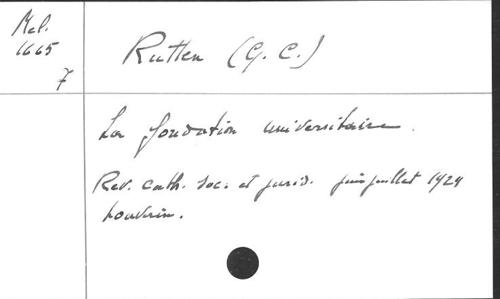 Mel.
1665
7
Rutten (G. C.)
La fondation universitaire.
Rev. cath. soc. et jurid. juin juillet 1924
Louvain.